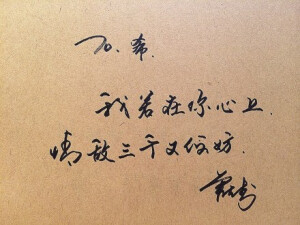 To. 希
我若在你心上.
情敌三千又何妨.